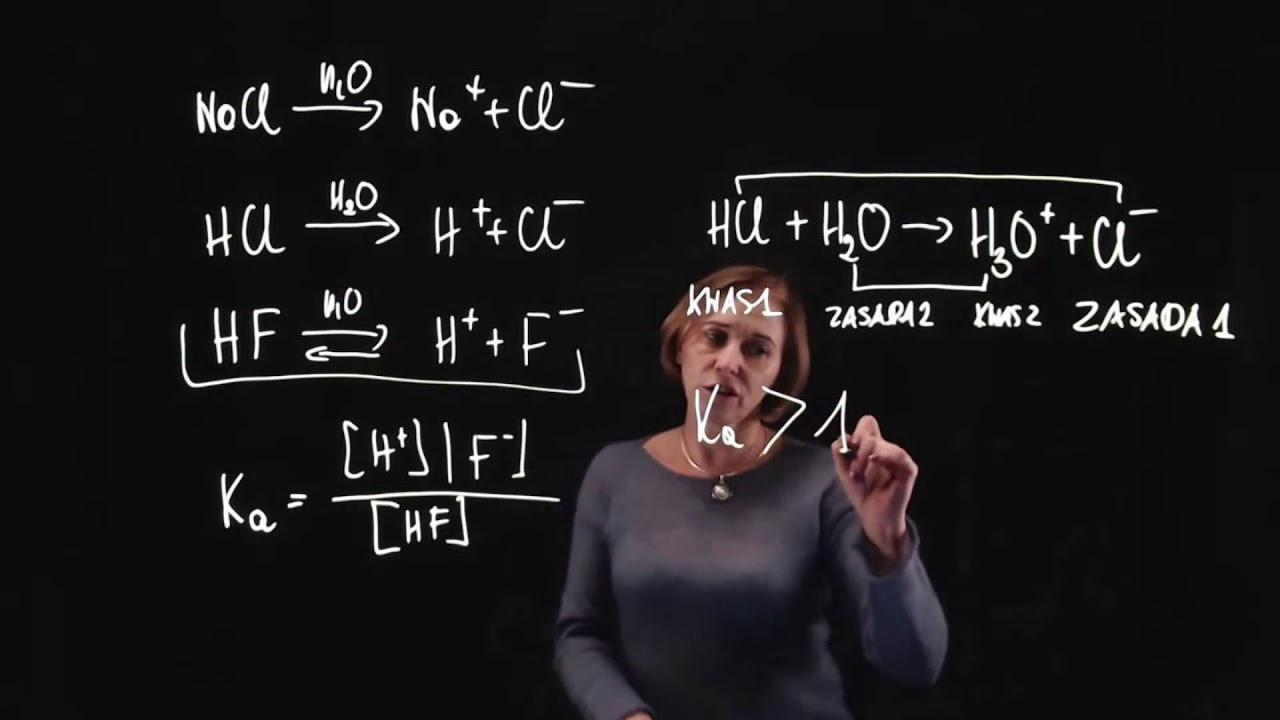 NaCl H₂O → Na⁺ + Cl⁻
HCl H₂O → H⁺ + Cl⁻
HF H₂O ⇌ H⁺ + F⁻
Ka = [H⁺][F⁻] / [HF]
HCl + H₂O → H₃O⁺ + Cl⁻
KWAS1 ZASADA2 KWAS2 ZASADA 1
Ka > 1